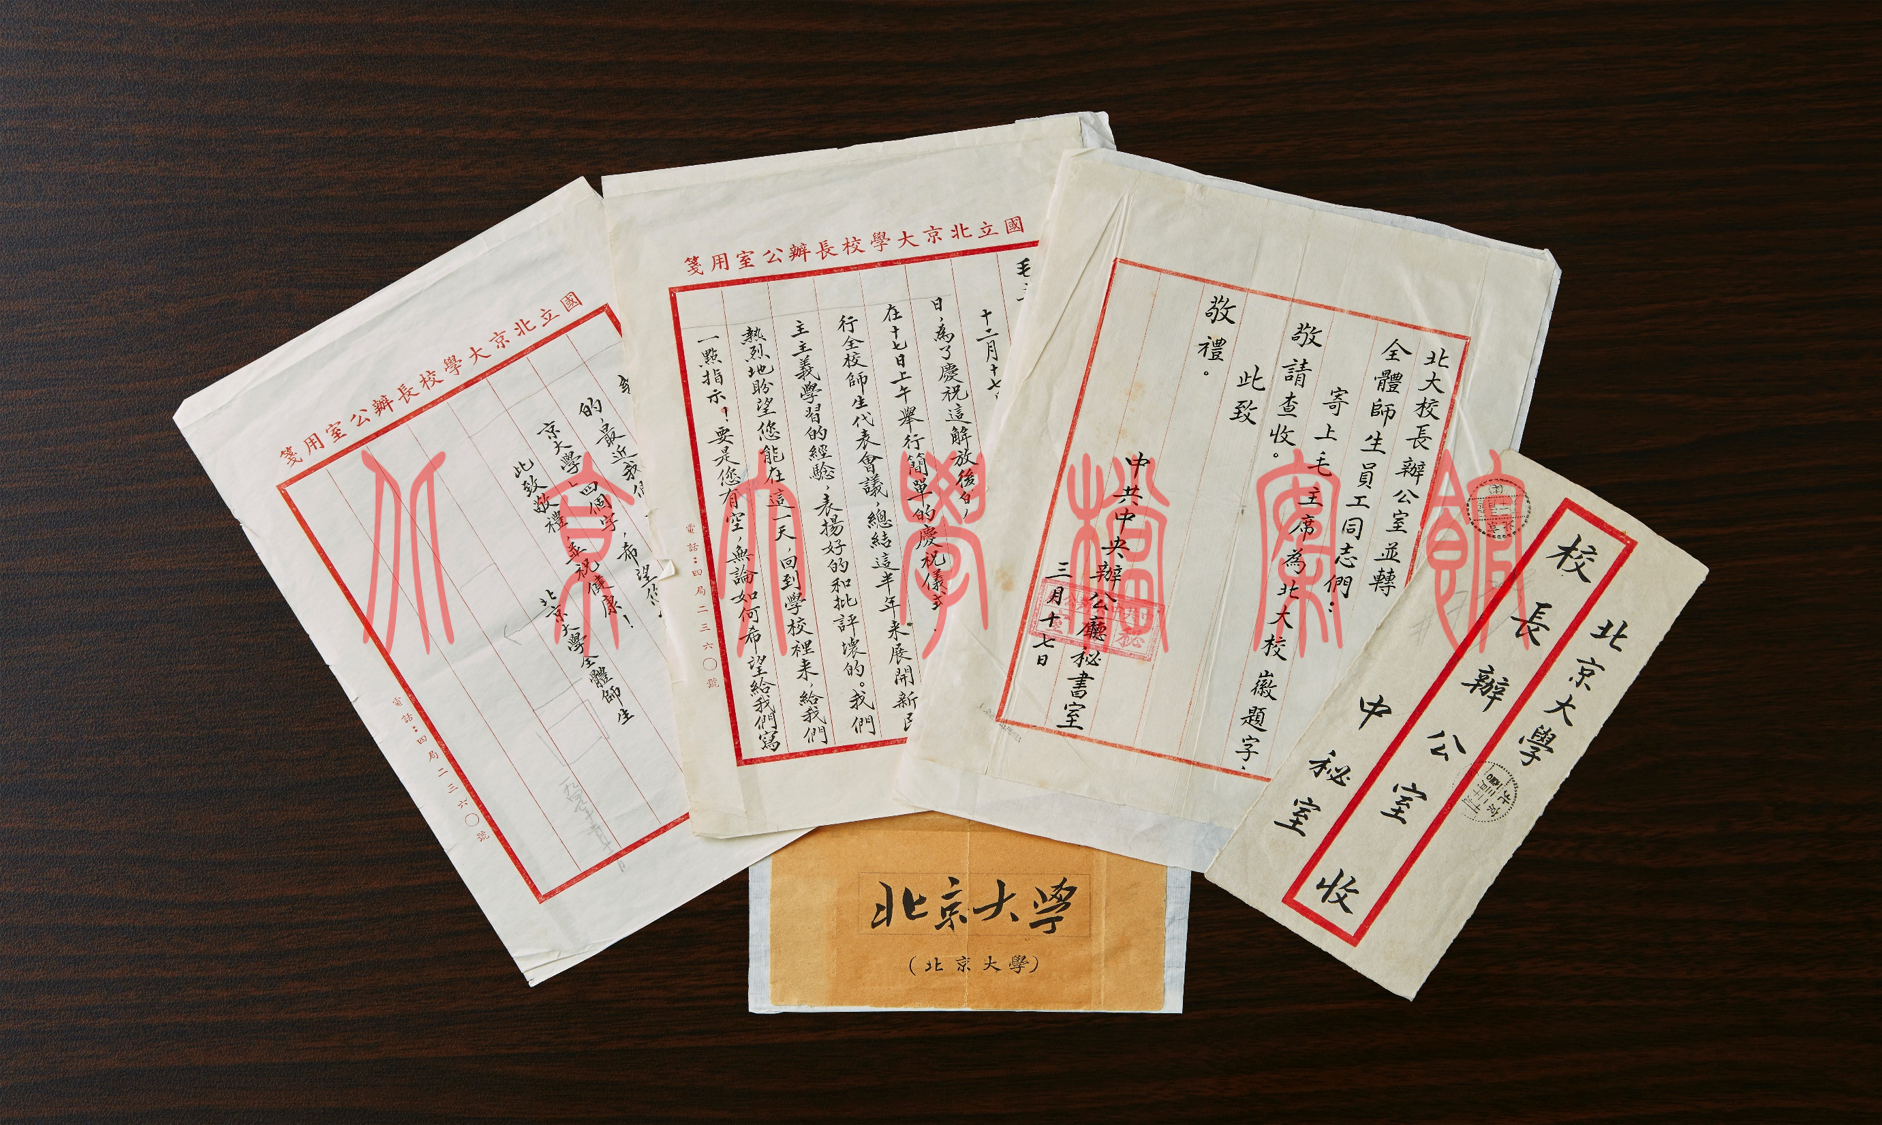 國立北京大學校長辦公室用箋
的。最近我們
京大學」四個字,希望您
此致敬禮,並祝健康!
北京大學全體師生
電話:四局二三六〇號
國立北京大學校長辦公室用箋
毛主
十二月十七
日,為了慶祝這解放後的
在十七日上午舉行簡單的慶祝儀式,
行全校師生代表會議,總結這半年來展開新民
主主義學習的經驗,表揚好的和批評壞的。我們
熱烈地盼望您能在這一天,回到學校裡來,給我們
一點指示!要是您有空,無論如何希望給我們寫
電話:四局二三六〇號
北大校長辦公室並轉
全體師生員工同志們:
寄上毛主席為北大校徽題字,
敬請查收。
此致
敬禮。
中共中央辦公廳秘書室
三月十七日
北京大學
校長辦公室 收
中秘室
北京大學
(北京大學)
北京大學檔案館